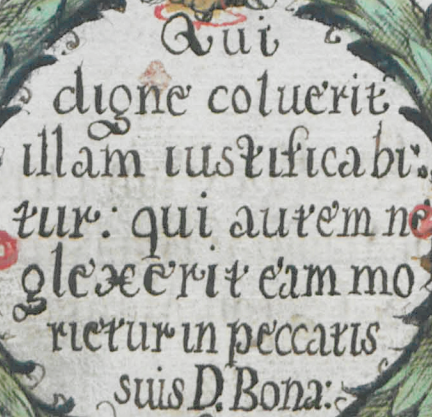 Qui
digne coluerit
illam iustificabi:
tur: qui autem ne
glexerit eam mo
rietur in peccatis
suis D. Bona: